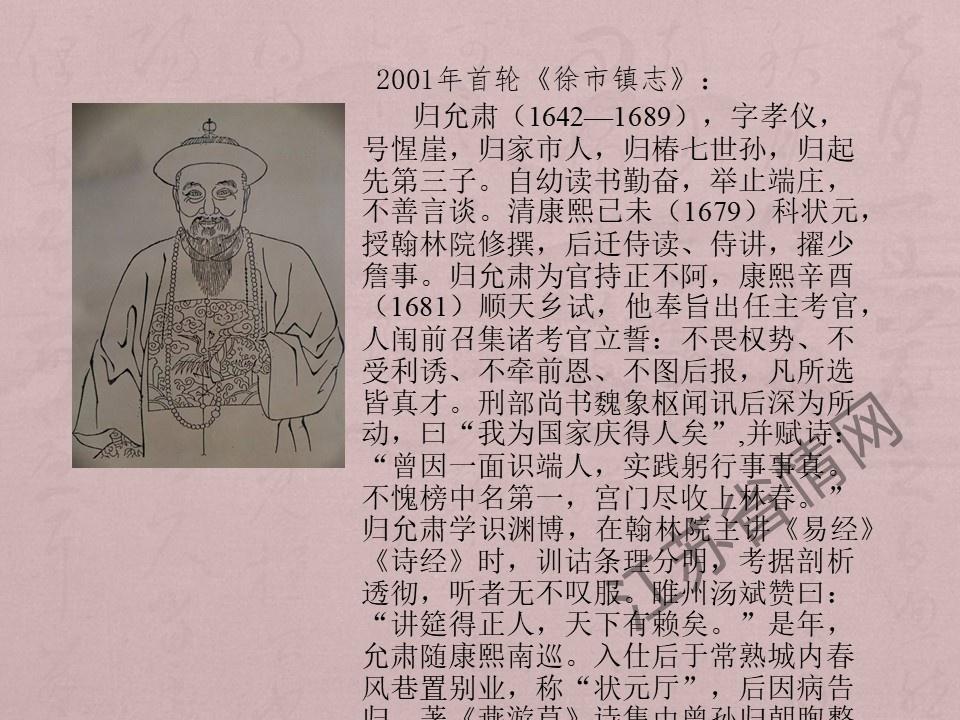 2001年首轮《徐市镇志》：
归允肃（1642—1689），字孝仪，
号惺崖，归家市人，归椿七世孙，归起
先第三子。自幼读书勤奋，举止端庄，
不善言谈。清康熙己未（1679）科状元，
授翰林院修撰，后迁侍读、侍讲，擢少
詹事。归允肃为官持正不阿，康熙辛酉
（1681）顺天乡试，他奉旨出任主考官，
人闱前召集诸考官立誓：不畏权势、不
受利诱、不牵前恩、不图后报，凡所选
皆真才。刑部尚书魏象枢闻讯后深为所
动，曰“我为国家庆得人矣”,并赋诗：
“曾因一面识端人，实践躬行事事真。
不愧榜中名第一，宫门尽收上林春。”
归允肃学识渊博，在翰林院主讲《易经》
《诗经》时，训诂条理分明，考据剖析
透彻，听者无不叹服。睢州汤斌赞曰：
“讲筵得正人，天下有赖矣。”是年，
允肃随康熙南巡。入仕后于常熟城内春
风巷置别业，称“状元厅”，后因病告
归。著《燕游草》诗集由曾孙归朝煦整
江苏省情网